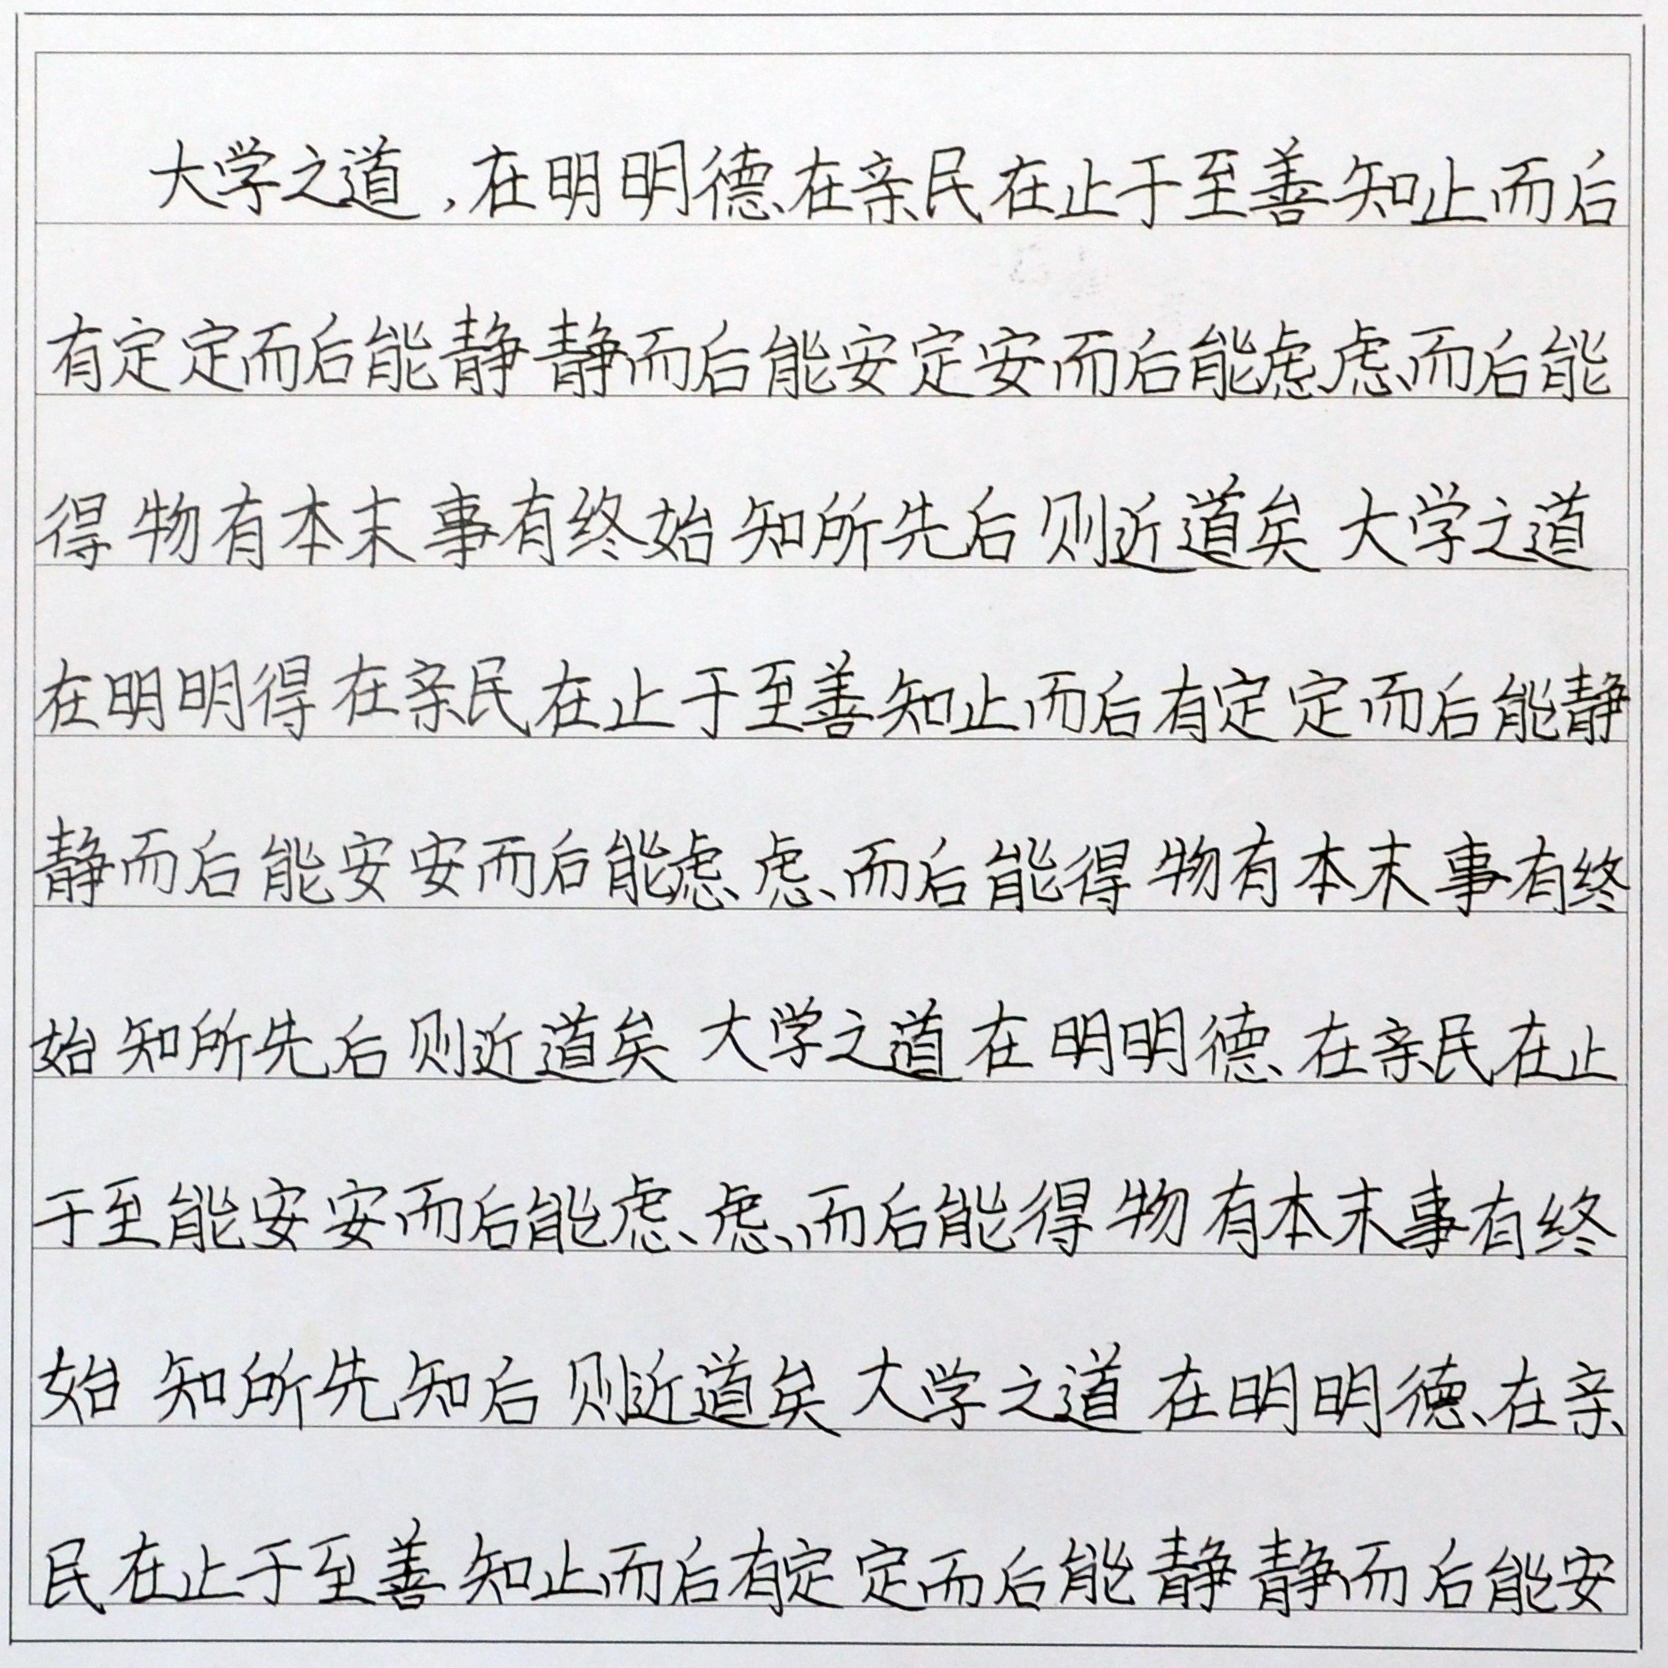 大学之道,在明明德在亲民在止于至善知止而后
有定定而后能静静而后能安定安而后能虑虑而后能
得物有本末事有终始知所先后则近道矣大学之道
在明明得在亲民在止于至善知止而后有定定而后能静
静而后能安安而后能虑虑而后能得物有本末事有终
始知所先后则近道矣大学之道在明明德在亲民在止
于至能安安而后能虑虑而后能得物有本末事有终
始知所先知后则近道矣大学之道在明明德在亲
民在止于至善知止而后有定定而后能静静而后能安